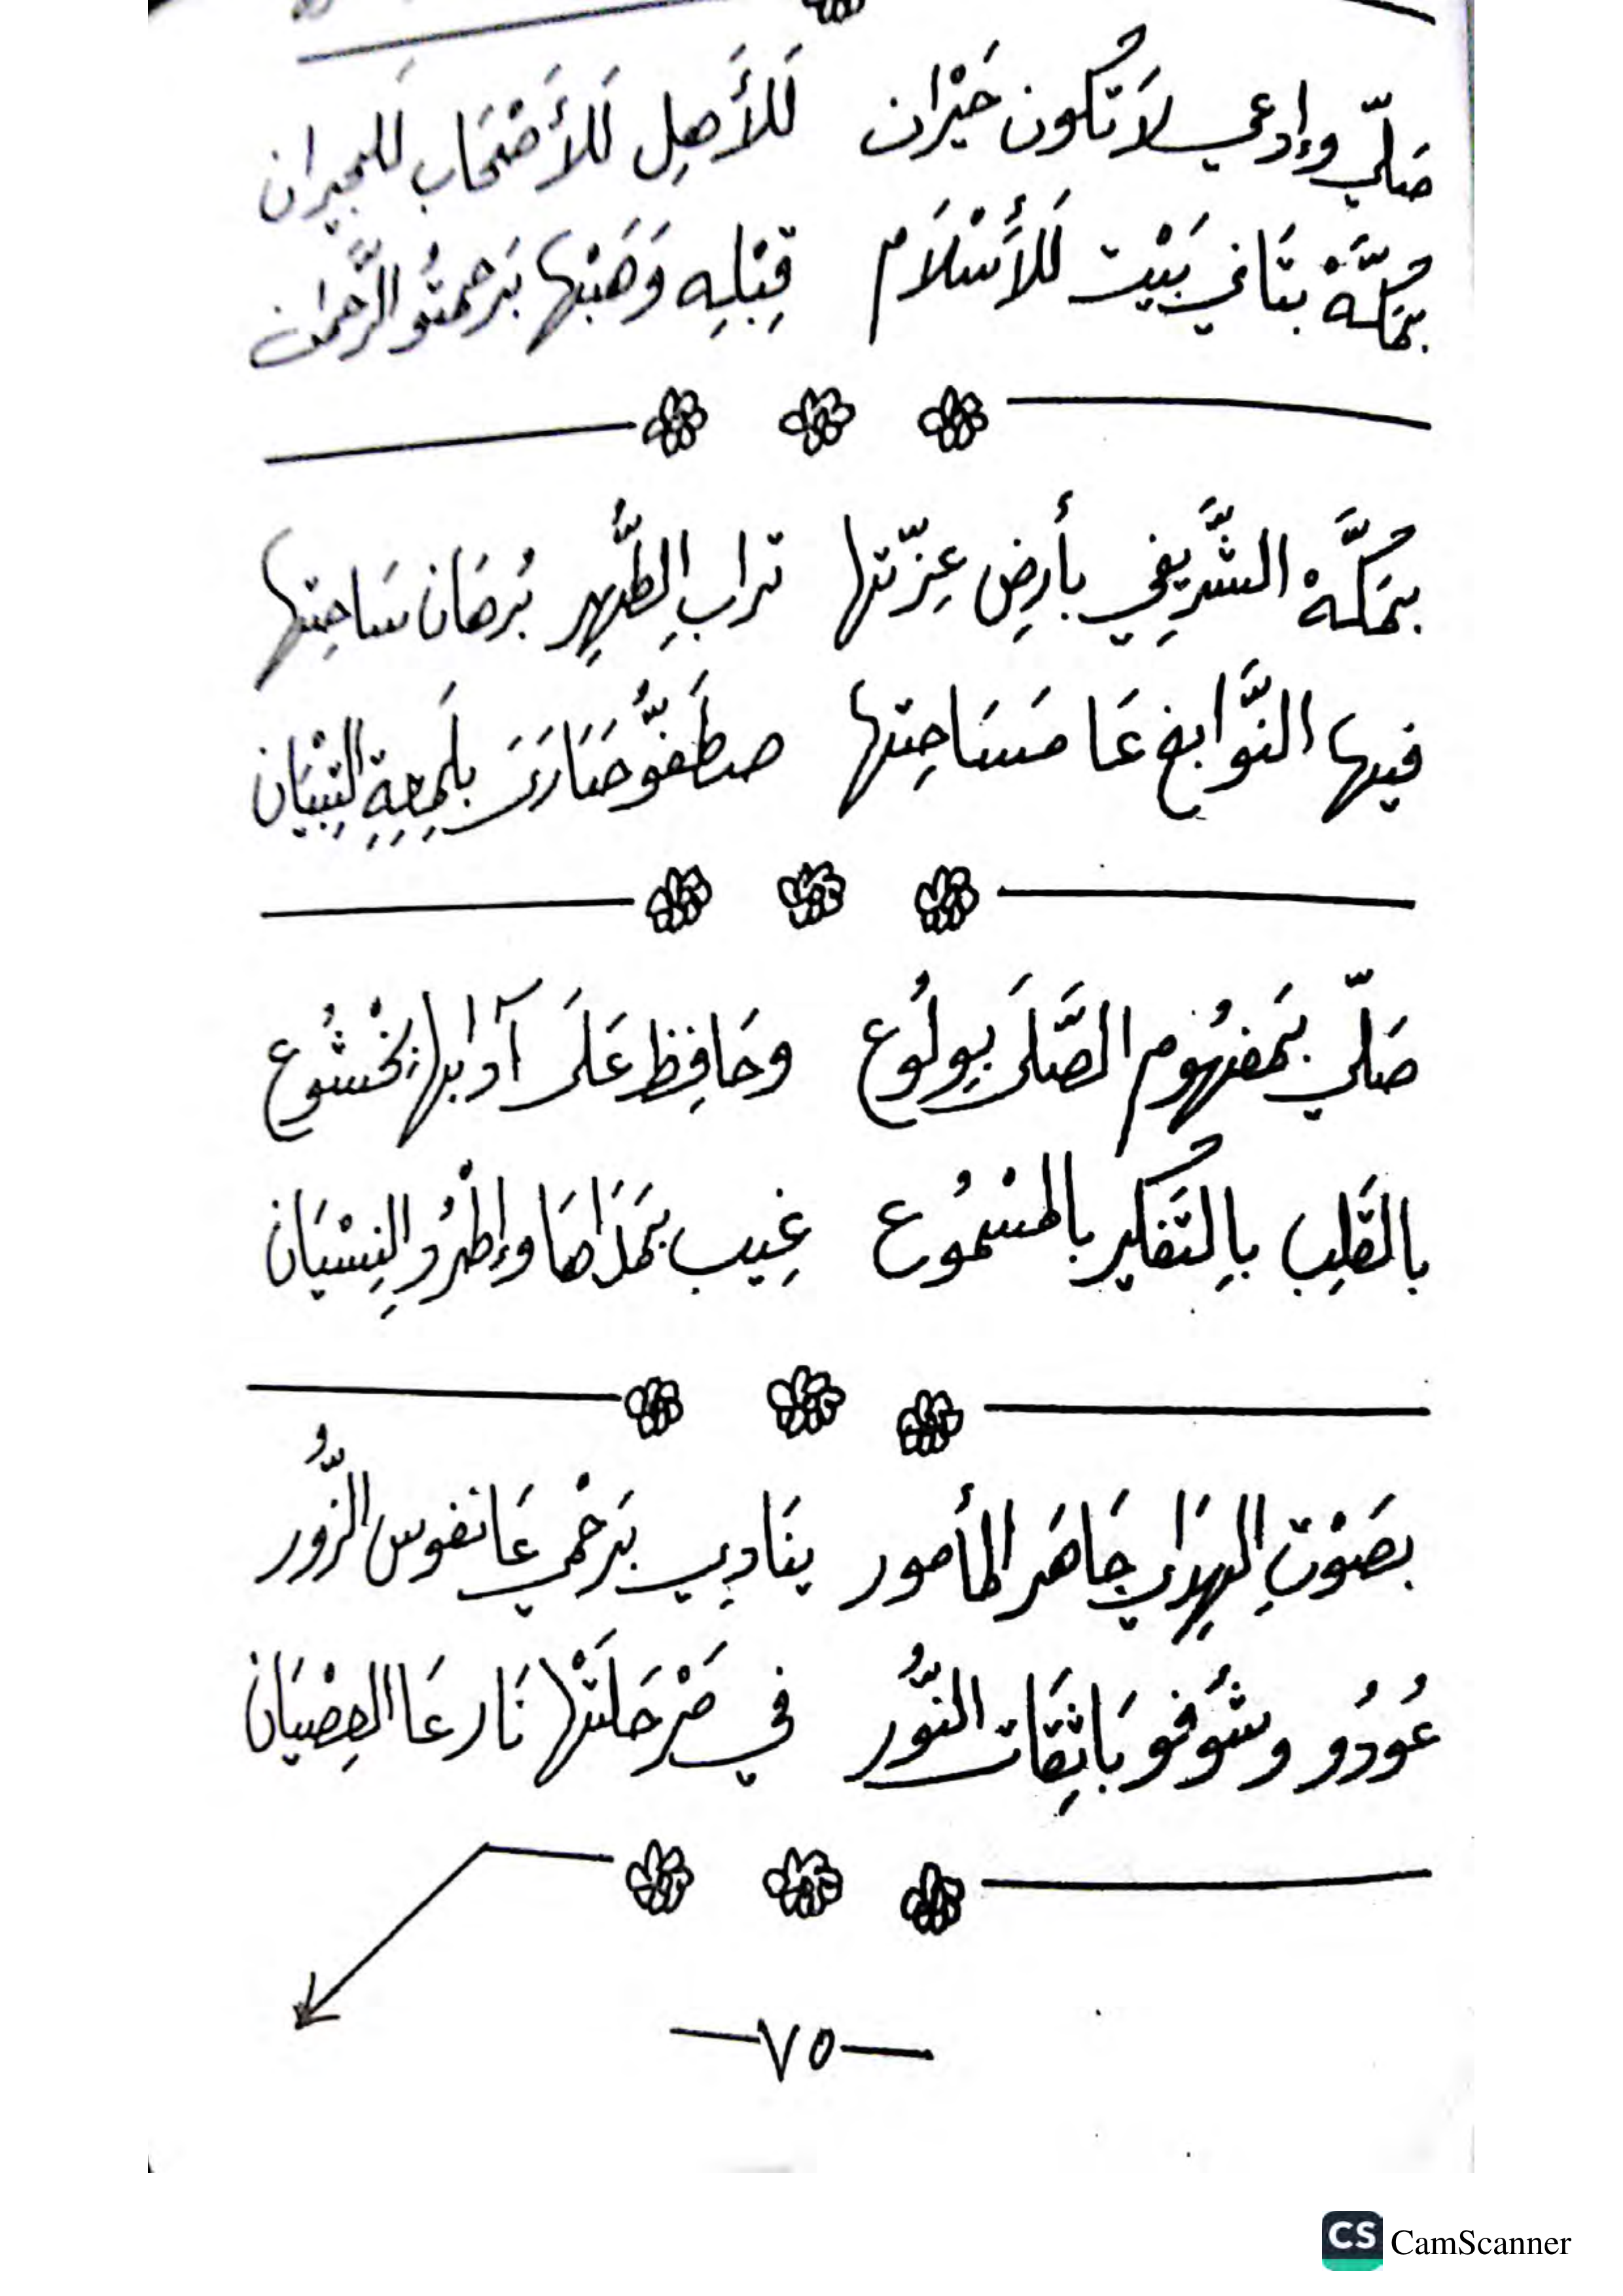 صَلّي وإدعي لاَ تكُون حَيْران لَلأَهلِ لَلأَصْحَاب لَلجيران
بمَكَّةْ بتَاني بَيْت لَلأَسْلاَم قِبْلِه وَهَبْها بَرحمتُو الرَّحمان
بمَكَّةْ الشَّريفِي بأرضِ عِزّتها ترابِ الطُّهرِ بُرهَان سَاحِتها
فيها النَّوابغ عَا مَسَاحِتها صطَفُّو حَيَارَىَ بلَمِعِةِ التِبيَان
صَلّي بمَفهُوم الصَّلىَ بِولُوع وحَافِظ عَلىَ آدابها بْخشُوع
بالقَلِب بالِتَفكير بالمسْمُوع غِيب بمَدَاهَا وإطْرُدِ النِسْيَان
بصَوْتِ الهِدَاي جَاهَر المأمور ينَادِي بَرحْمي عَا نفوس الزُّور
عُودُو وشُوفُو بَاثِقَات النُّور في مَرْحَلَتْها نَار عَا العِصْيَان
—٧٥—
CS CamScanner